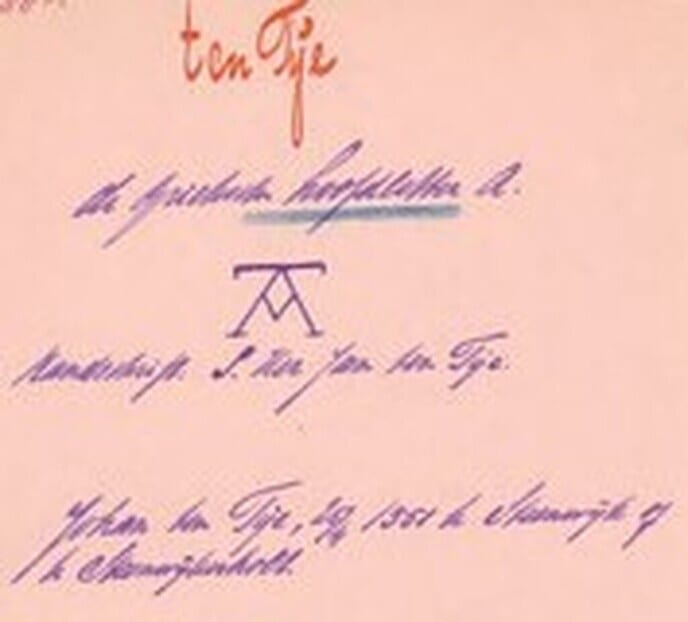 ten Tije
de Grieksche hoofdletter A.
Handschrift S. Heer Jan ten Tije.
Johan ten Tije, 1551 te Steenwijk of
te Steenwijkerwolt.